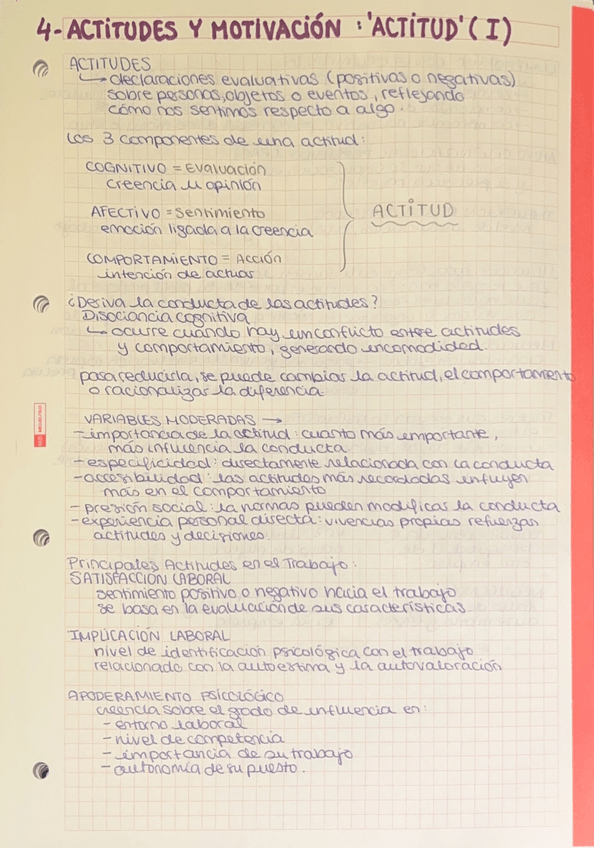 4- ACTITUDES Y MOTIVACIÓN : 'ACTITUD' (I)
ACTITUDES
↳ declaraciones evaluativas (positivas o negativas)
sobre personas, objetos o eventos, reflejando
cómo nos sentimos respecto a algo.
Los 3 componentes de una actitud:
COGNITIVO = Evaluación
creencia u opinión
AFECTIVO = Sentimiento
emoción ligada a la creencia
ACTITUD
COMPORTAMIENTO = Acción
intención de actuar
¿Deriva la conducta de las actitudes?
Disociancia cognitiva
↳ ocurre cuando hay un conflicto entre actitudes
y comportamiento, generando incomodidad
para reducirla, se puede cambiar la actitud, el comportamiento
o racionalizar la diferencia
VARIABLES MODERADAS →
- importancia de la actitud: cuanto más importante,
más influencia la conducta
- especificidad: directamente relacionada con la conducta
- accesibilidad: las actitudes más recordadas influyen
más en el comportamiento
- presión social: la normas pueden modificar la conducta
- experiencia personal directa: vivencias propias refuerzan
actitudes y decisiones
Principales Actitudes en el Trabajo:
SATISFACCIÓN LABORAL
sentimiento positivo o negativo hacia el trabajo
se basa en la evaluación de sus características.
IMPLICACIÓN LABORAL
nivel de identificación psicológica con el trabajo
relacionado con la autoestima y la autovaloración
APODERAMIENTO PSICOLÓGICO
creencia sobre el grado de influencia en:
- entorno laboral
- nivel de competencia
- importancia de su trabajo
- autonomía de su puesto.